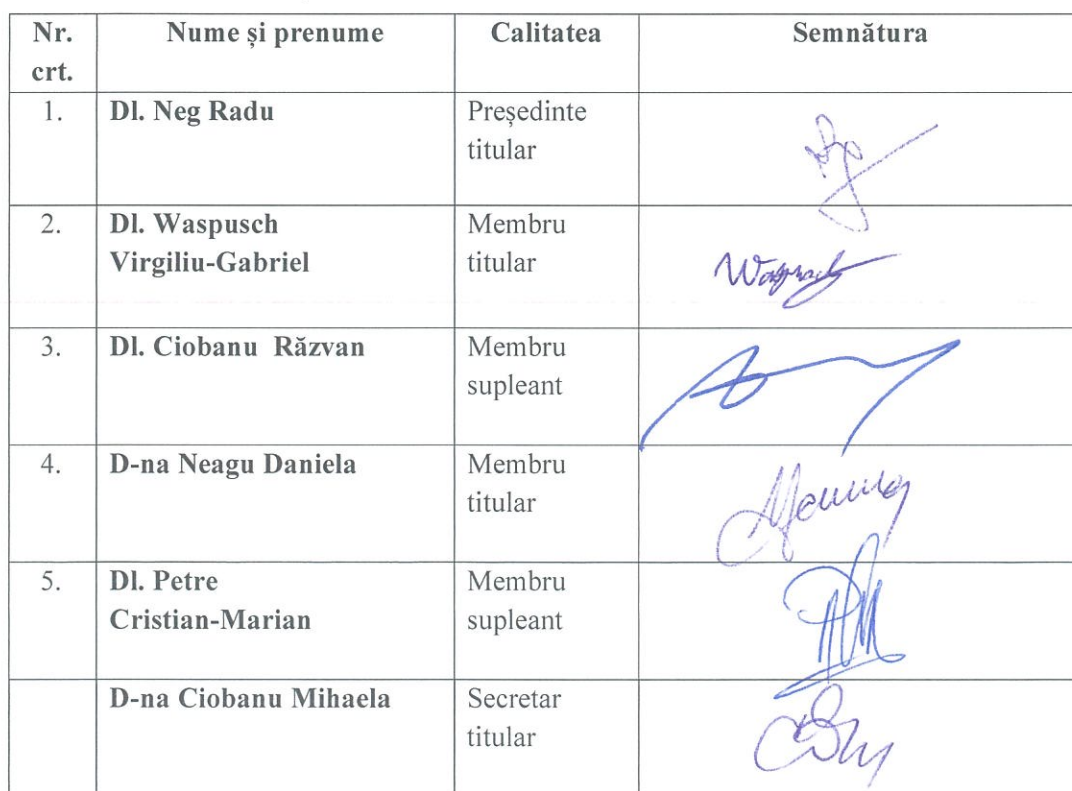 Nr. crt.
Nume și prenume
Calitatea
Semnătura
1.
Dl. Neg Radu
Președinte
titular
2.
Dl. Waspusch
Virgiliu-Gabriel
Membru
titular
3.
Dl. Ciobanu Răzvan
Membru
supleant
4.
D-na Neagu Daniela
Membru
titular
5.
Dl. Petre
Cristian-Marian
Membru
supleant
D-na Ciobanu Mihaela
Secretar
titular